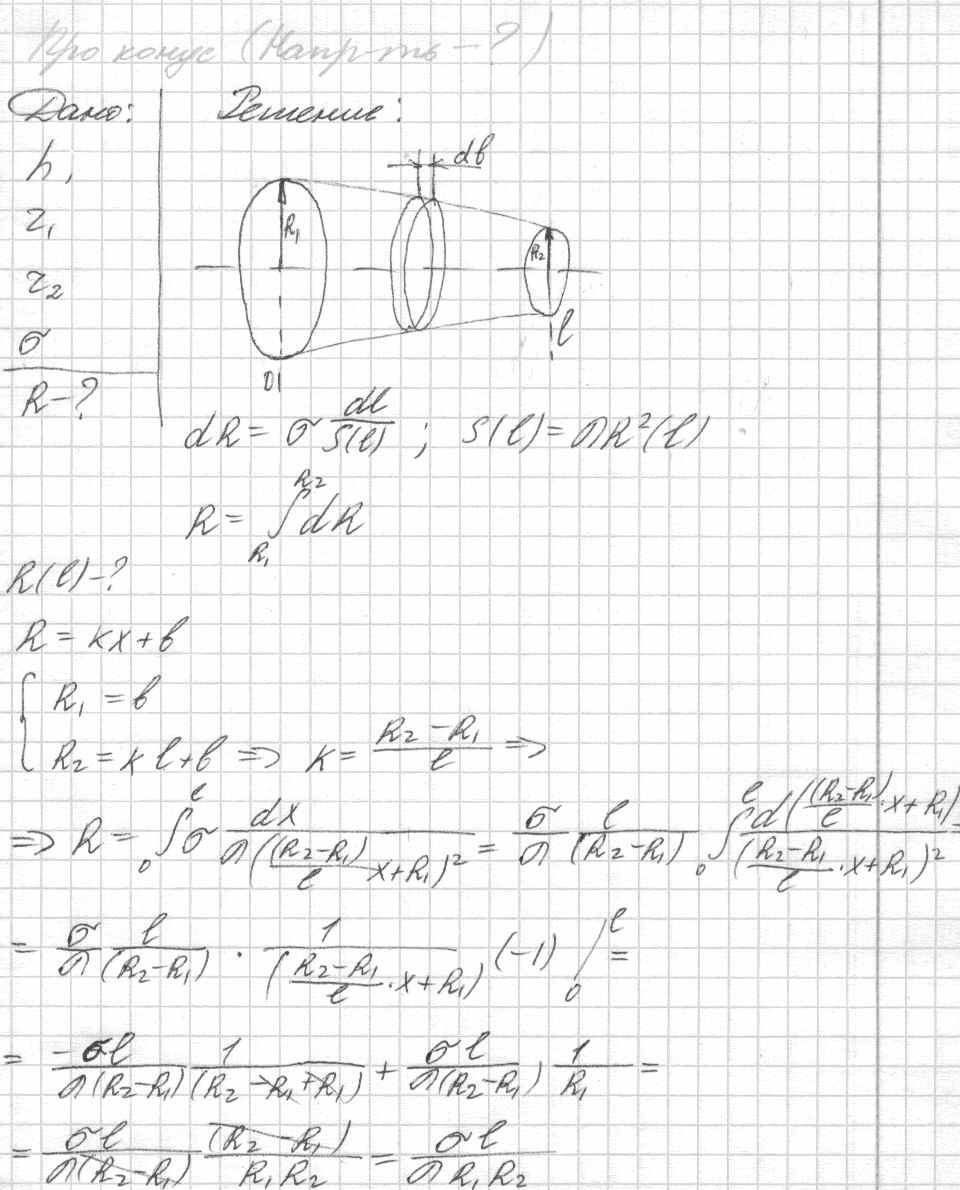 Про конус (Напр-ть - ?)
Дано:
h,
r₁
r₂
σ
R - ?
Решение:
dl
R₁
R₂
l
0
dR = σ dl/S(l) ; S(l) = πR²(l)
R = ∫_{R₁}^{R₂} dR
R(l) - ?
R = kx + b
{ R₁ = b
R₂ = kl + b => k = (R₂ - R₁)/l =>
=> R = ∫₀^l σ dx/(π((R₂-R₁)/l x + R₁)²) = σ/π l/(R₂-R₁) ∫₀^l d((R₂-R₁)/l · x + R₁)/((R₂-R₁)/l · x + R₁)² =
= σ/π l/(R₂-R₁) · 1/((R₂-R₁)/l · x + R₁) (-1) |₀^l =
= -σl/(π(R₂-R₁)) 1/(R₂ - R₁ + R₁) + σl/(π(R₂-R₁)) 1/R₁ =
= σl/(π(R₂-R₁)) (R₂ - R₁)/(R₁R₂) = σl/(πR₁R₂)